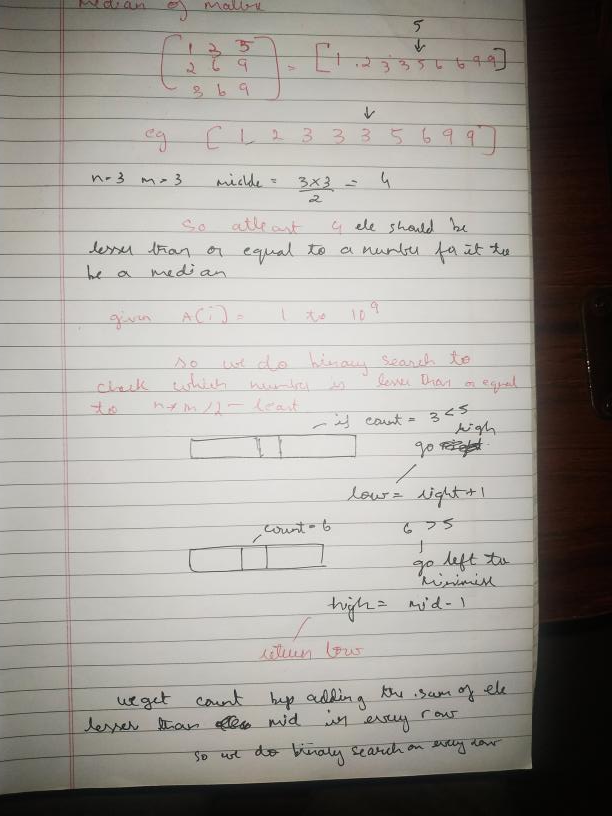 median of matrix
5
↓
1 3 5
2 6 9
3 6 9
= [1 . 2 3 3 5 6 6 9 9]
↓
eg [ 1, 2 3 3 3 5 6 9 9 ]
n=3 m=3 middle = 3×3/2 = 4
so atleast 4 ele should be
lesser than or equal to a number for it to
be a median
given A[i] = 1 to 10^9
so we do binary search to
check which number is lesser than or equal
to n*m/2 - least
- if count = 3 < 5
go high
low = right + 1
count = 6
6 > 5
go left to
minimise
high = mid - 1
return low
we get count by adding the sum of ele
lesser than mid in every row
so we do binary search on every row